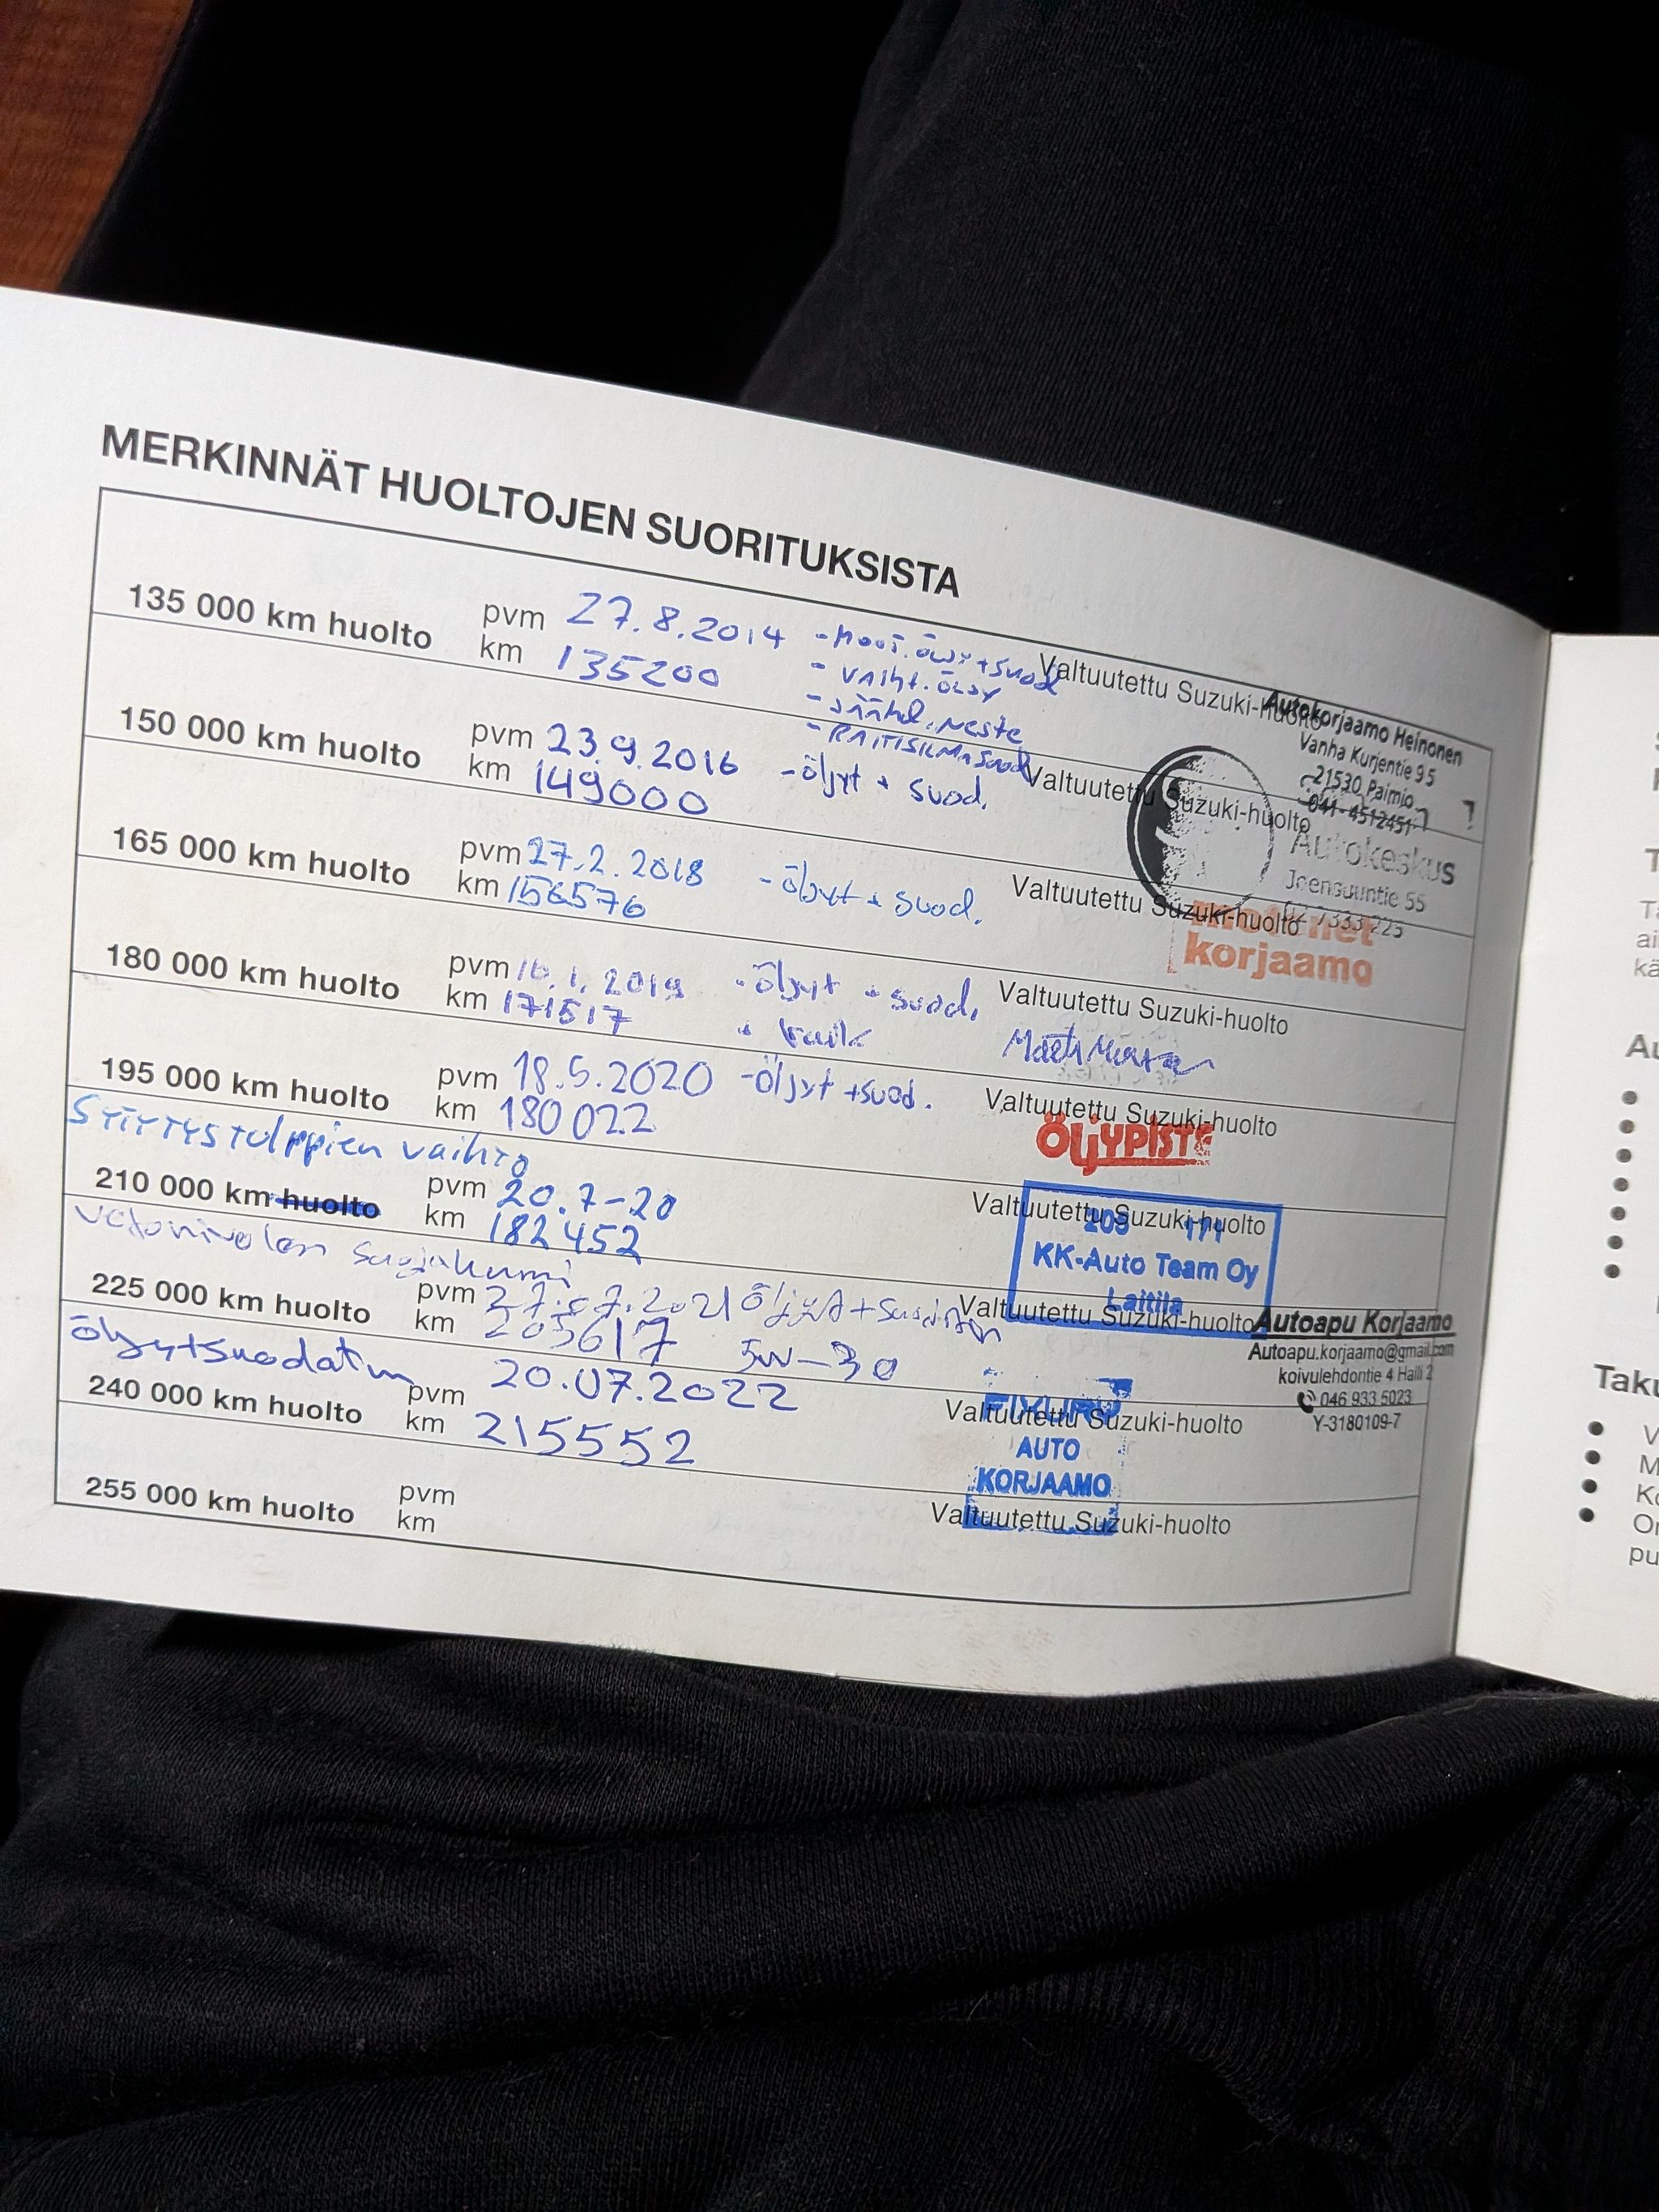 MERKINNÄT HUOLTOJEN SUORITUKSISTA
135 000 km huolto pvm 27.8.2014 - MOOT. ÖLJY + SUOD
km 135200 - VAIHT. ÖLJY
- JÄÄHD. NESTE
- RAITISILMASUOD
Valtuutettu Suzuki-huolto
Autokorjaamo Heinonen
Vanha Kurjentie 95
21530 Paimio
041-4512451
150 000 km huolto pvm 23.9.2016 - öljyt + suod.
km 149000
Valtuutettu Suzuki-huolto
Autokeskus
Joensuuntie 55
02 7333 225
165 000 km huolto pvm 27.2.2018 - öljyt + suod.
km 156576
Valtuutettu Suzuki-huolto
motonet
korjaamo
180 000 km huolto pvm 16.1.2019 - öljyt + suod.
km 171517 +
Valtuutettu Suzuki-huolto
195 000 km huolto pvm 18.5.2020 - öljyt + suod.
km 180022
Valtuutettu Suzuki-huolto
ÖLJYPISTE
SYTYTYStulppien vaihto
210 000 km huolto pvm 20.7-20
km 182452
Valtuutettu Suzuki-huolto
209 171
KK-Auto Team Oy
Laitila
vetonivelen suojakumi
225 000 km huolto pvm 27.07.2021 Öljyt + suodatin
km 203617 5W-30
Valtuutettu Suzuki-huolto
Autoapu Korjaamo
Autoapu.korjaamo@gmail.com
koivulehdontie 4 Halli 2
046 933 5023
Y-3180109-7
öljyt+suodatin
240 000 km huolto pvm 20.07.2022
km 215552
Valtuutettu Suzuki-huolto
FIXURO
AUTO
KORJAAMO
255 000 km huolto pvm
km
Valtuutettu Suzuki-huolto